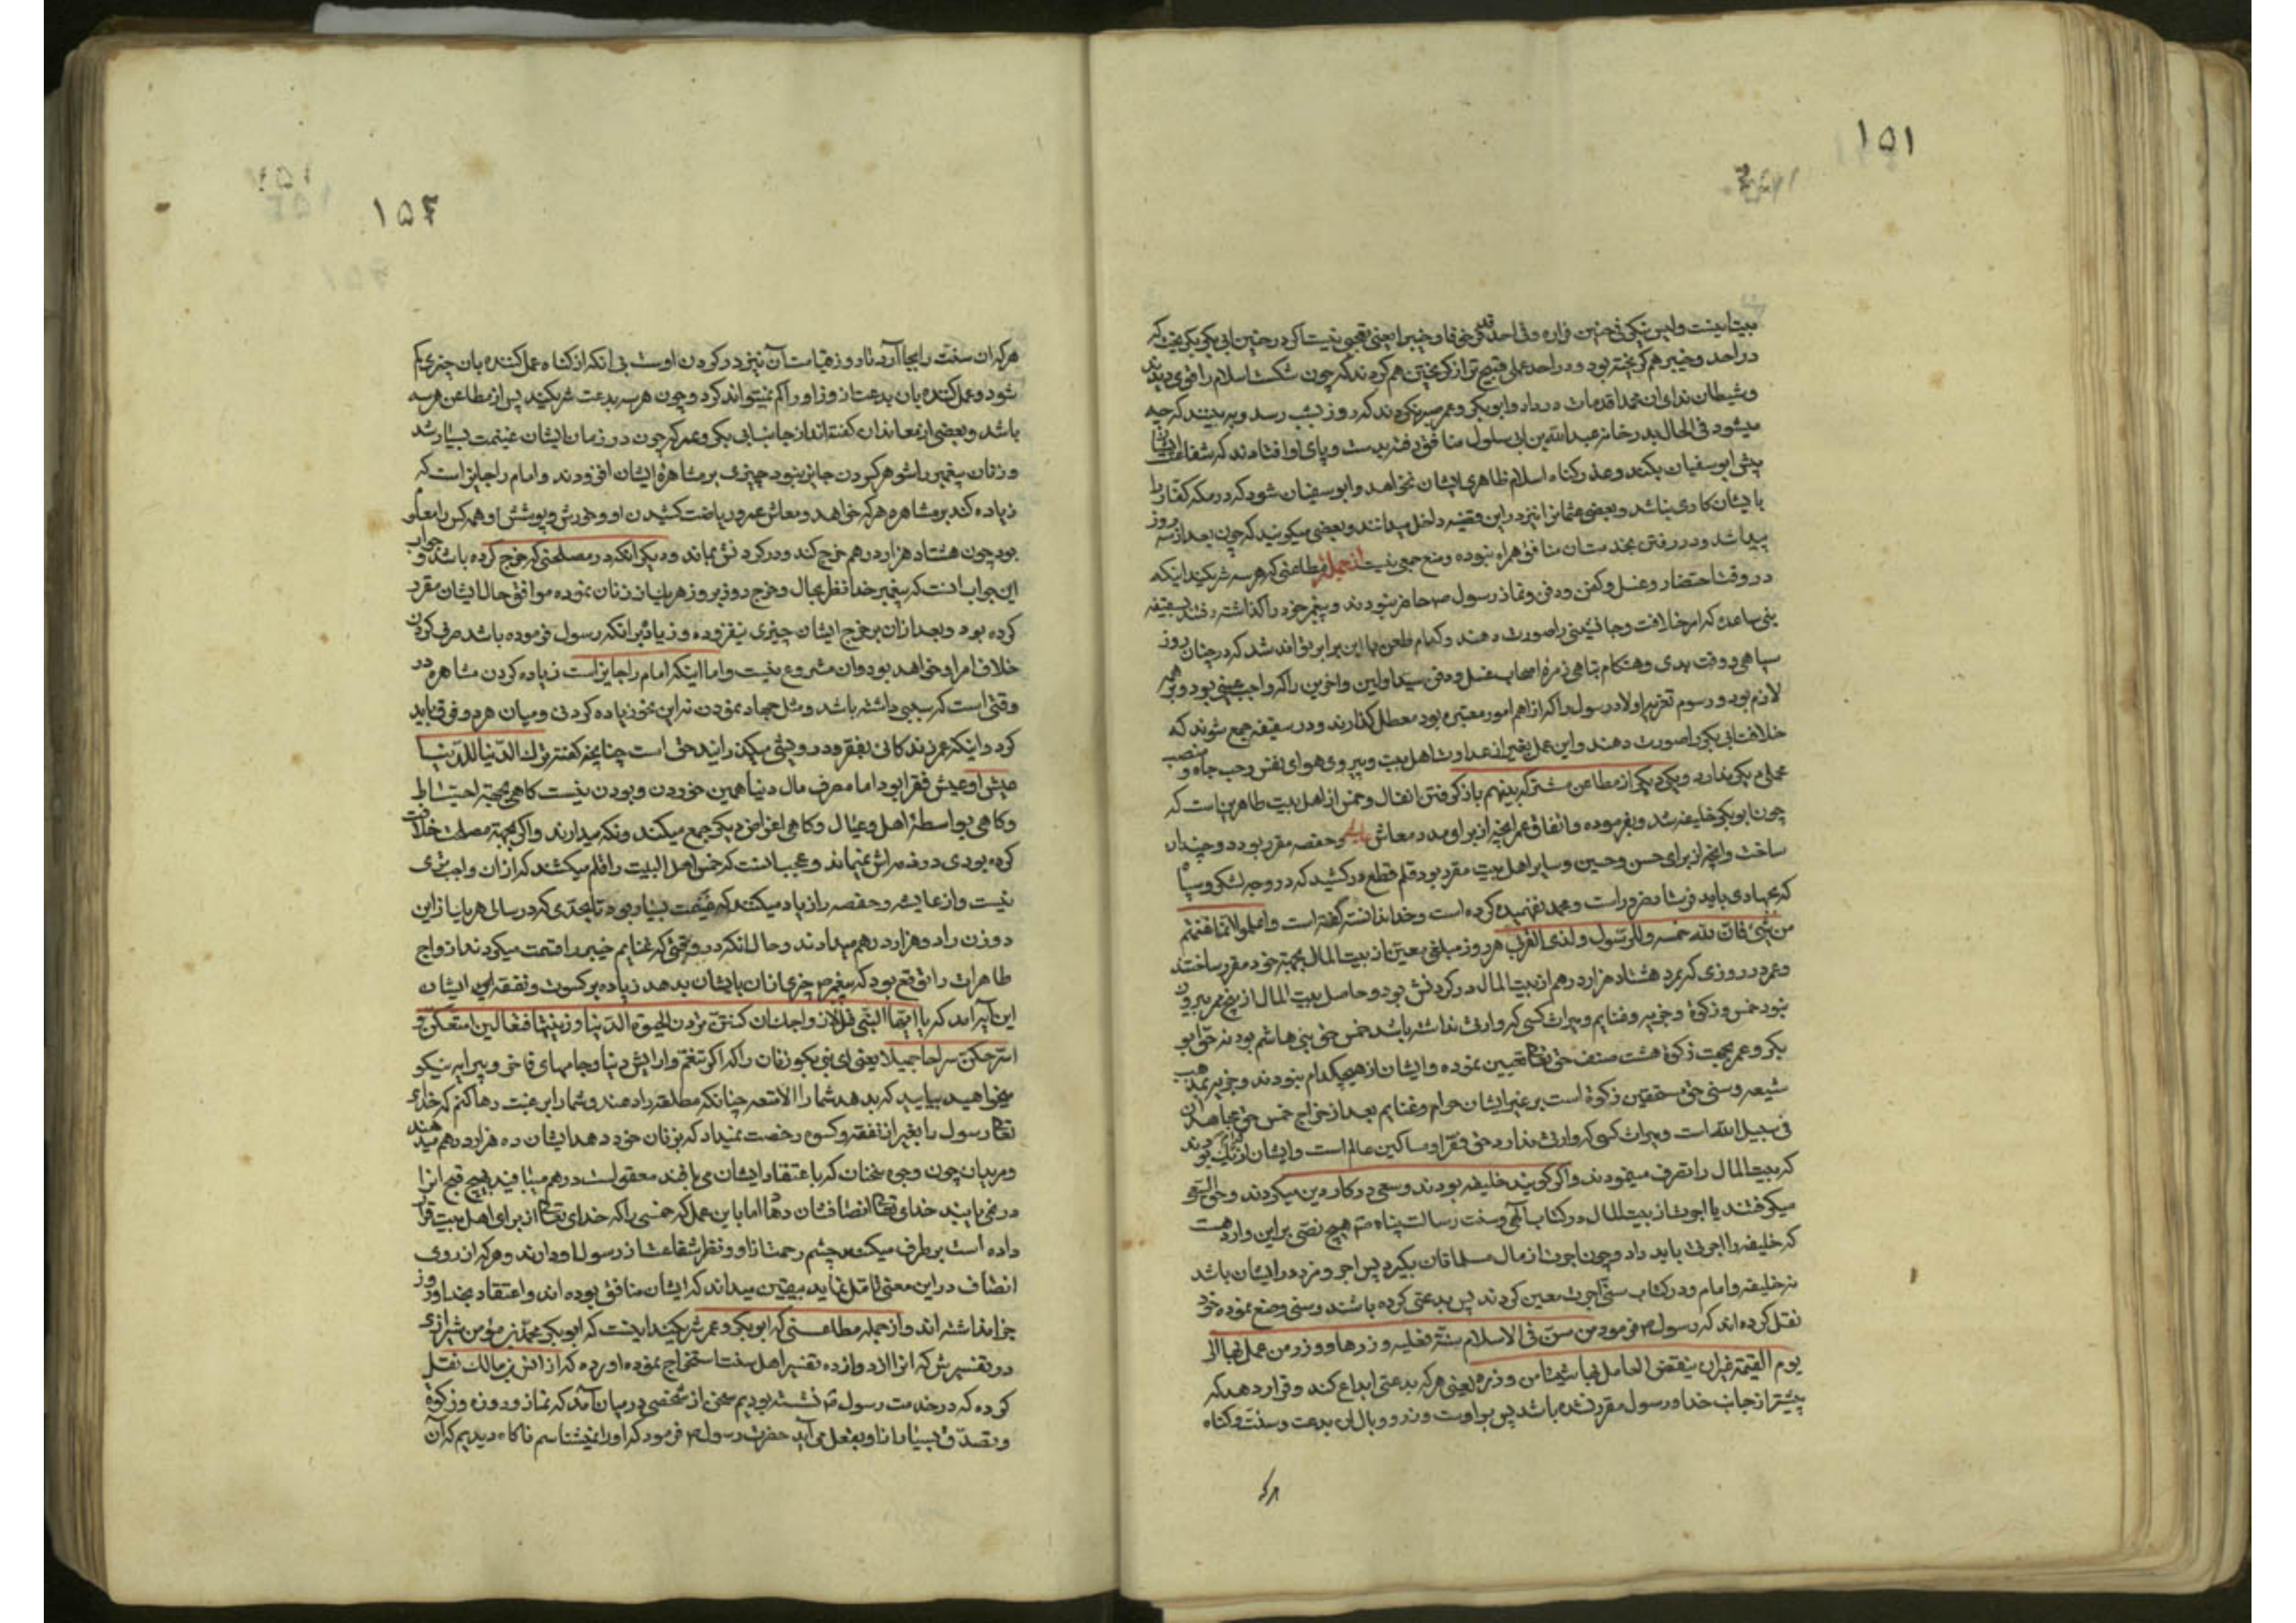 ۱۵۱
در احد و خیبر هم گریخته بود و در احد عملی قبیح تر از گریختن هم کردند که چون شکست اسلام را قوی دیدند
و شیطان ندای ان محمدا قد مات در داد و ابوبکر و عمر صبر نکردند که روز بشب رسد و به بینند که چه
میشود فی الحال بدر خانه عبدالله بن ابی سلول منافق رفته بدست و پای او افتادند که شفاعت ایشان
پیش ابوسفیان بکند و عذر گناه اسلام ظاهری ایشان بخواهد و ابوسفیان شود که در مکه کفار را
با ایشان کاری نباشد و بعضی عثمان را نیز در این قضیه داخل میدانند و بعضی میگویند که چون بعد از سه روز
پیدا شد و در رفتن بخدمت آن منافق همراه نبوده و منع جمعی نیست از جمله مطاعنی که هر سه شریکند اینکه
در وقت احتضار و غسل و کفن و دفن و نماز رسول ص حاضر نبودند و پیغمبر خود را گذاشته رفتند بسقیفه
بنی ساعده که امر خلافت و جانشینی را صورت دهند و کدام طعن با این برابر تواند شد که در چنان روز
سیاهی و وقت بدی و هنگام تباهی زمره اصحاب غسل و دفن سید اولین و اخرین را که واجب عینی بود و بر همه
لازم بود و رسوم تعزیه اولاد رسول را که از اهم امور معتبره بود معطل گذارند و در سقیفه جمع شوند که
خلافت ابی بکر را صورت دهند و این عمل بغیر از عداوت اهل بیت و پیروی هوای نفس و حب جاه و منصب
محملی دیگر ندارد و یکی دیگر از مطاعن مشترکه بینهم باز گرفتن انفال و خمس از اهل بیت طاهرین است که
چون ابوبکر خلیفه شد و بفرموده و اتفاق عمر انچه از برای مدد معاش عایشه و حفصه مقرر بود دو چندان
ساخت و انچه از برای حسن و حسین و سایر اهل بیت مقرر بود قلم قطع در کشید که در وجه لشکر و سپاه
که بجهادی باید فرستاد ضرور است و عمد نفهمیده کرده است و خدا ندانسته گفته است و اعلموا انما غنمتم
من شیء فان لله خمسه و للرسول و لذی القربی هر روز مبلغی معین از بیت المال بجهة خود مقرر ساختند
و عمر در روزی که مرد هشتاد هزار درهم از بیت المال در گردنش بود و حاصل بیت المال از پنج ممر بیرون
نبود خمس و زکوة و جزیه و غنایم و میراث کسی که وارث نداشته باشد خمس حق بنی هاشم بود نه حق ابو
بکر و عمر بجهت زکوة هشت صنف حق تعالی تعیین نموده و ایشان از هیچکدام نبودند و جزیه بمذهب
شیعه و سنی حق مستحقین زکوة است بر غیر ایشان حرام و غنایم بعد از اخراج خمس حق مجاهدان
فی سبیل الله است و میراث کسی که وارث ندارد حق فقرا و مساکین عالم است و ایشان
که بیت المال را تصرف مینمودند و اگر گویند خلیفه بودند و سعی در کار دین میکردند و حق السعی
میگرفتند یا اجرت از بیت المال در کتاب الهی و سنت رسالت پناه صم هیچ نصی بر این وارد هست
که خلیفه را اجرت باید داد و چون اجرت از مال مسلمانان بگیرد پس اجر و مزد در ایشان باشد
نه خلیفه و امام و در کتاب سنی اجرت معین کردند پس بدعتی کرده باشند و سنی وضع نموده خود
نقل کرده اند که رسول ص فرمود من سن فی الاسلام سنة فعلیه وزرها و وزر من عمل بها الی
یوم القیمة غیر ان ینقض العامل بها شیئا من وزره یعنی هر که بدعتی ابداع کند و قرار دهد که
پیشتر از جانب خدا و رسول مقرر نشده باشد پس بر اوست وزر و وبال ان بدعت و سنت و گناه
هر که
۱۵۲
هر که ان سنت را بجا آرد تا روز قیامت آن نیز در گردن اوست بی انکه از گناه عمل کننده بان چیزی کم
شود و عمل کننده بان بدعت از وزر او را کم نمیتواند کرد و چون هر سه بدعت شریکند پس از مطاعن هر سه
باشد و بعضی از معاندان گفته اند از جانب ابی بکر و عمر که چون در زمان ایشان غنیمت بسیار شد
و زنان پیغمبر را شوهر کردن جایز نبود چیزی بر مشاهره ایشان افزودند و امام را جایز است که
زیاده کند بر مشاهره هر که خواهد و معاش عمر و ریاضت کشیدن او و خورش و پوشش او همه کس را معلوم
بود چون هشتاد هزار درهم خرج کند و در گردنش بماند و دیگر انکه در مصلحتی که خرج کرده باشد و جواب
این جواب انست که پیغمبر خدا نظر بحال و خرج روز بروز هر یک از زنان نموده موافق حال ایشان مقرر
کرده بود و بعد از ان بر خرج ایشان چیزی نیفزوده و زیاده بر انکه رسول فرموده باشد صرف کردن
خلاف امر او خواهد بود و ان مشروع نیست و اما اینکه امام را جایز است زیاده کردن مشاهره در
وقتی است که سببی داشته باشد و مثل جهاد نمودن نه این نحو زیاده کردن و میان هر دو فرق باید
کرد و اینکه عمر زندگانی بفقر و درویشی میگذرانید حق است چنانچه گفته ترک الدنیا للدنیا
عیش او عیش فقرا بود اما مصرف مال دنیا همین خوردن و بودن نیست گاهی بجهة احتیاط
و گاهی بواسطه اهل و عیال و گاهی اغراض دیگر جمع میکنند و نگه میدارند و اگر بجهة مصلحت خلافت
کرده بودی در ذمه اش نمیماند و عجب انست که خمس اهل البیت را قلم میکشند که از ان واجب تری
نیست و از عایشه و حفصه را زیاد میکنند که غنیمت بسیار بود تا بحدی که در سالی هر یک از این
دو زن را دو هزار درهم میدادند و حال انکه در وقتی که غنایم خیبر را قسمت میکردند ازواج
طاهرات را توقع بود که پیغمبر ص چیزی از ان بایشان بدهد زیاده بر کسوت و نفقه این ایشان
این آیه آمد که یا ایها النبی قل لازواجک ان کنتن تردن الحیوة الدنیا و زینتها فتعالین امتعکن و
اسرحکن سراحا جمیلا یعنی ای نبی بگو زنان را که اگر تنعم و ارایش دنیا و جامهای فاخر و پیرایه نیکو
میخواهید بیایید که بدهد شما را الامتعه چنانکه مطلقه را دهند و شما را بی عنت رها کنم که خدای
تعالی رسول را بغیر از نفقه و کسوه رخصت نمیداد که بزنان خود دهد ایشان ده هزار درهم میدهند
و مریدان چون وجوه سخنان که با اعتقاد ایشان می بافند معقول است در هم میبافند و هیچ قبح انرا
در نمی یابند خدای تعالی انصافشان دهاد اما با این عمل که خمسی را که خدای تعالی از برای اهل بیت قرار
داده است بر طرف میکنند چشم رحمت از او و نظر شفاعت از رسول او دارند و هر که از روی
انصاف در این معنی تامل نماید بیقین میداند که ایشان منافق بوده اند و اعتقاد بخدا و روز
جزا نداشته اند و از جمله مطاعنی که ابوبکر و عمر شریکند اینست که ابوبکر محمد بن مؤمن شیرازی
در تفسیرش که انرا از دوازده تفسیر اهل سنت استخراج نموده اورده که از انس بن مالک نقل
کرده که در خدمت رسول ص نشسته بودیم سخن از شخصی در میان آمد که نماز و روزه و زکوة
و تصدق بسیار از او بفعل می آید حضرت رسول ص فرمود که او را نمیشناسم ناگاه دیدیم که آن